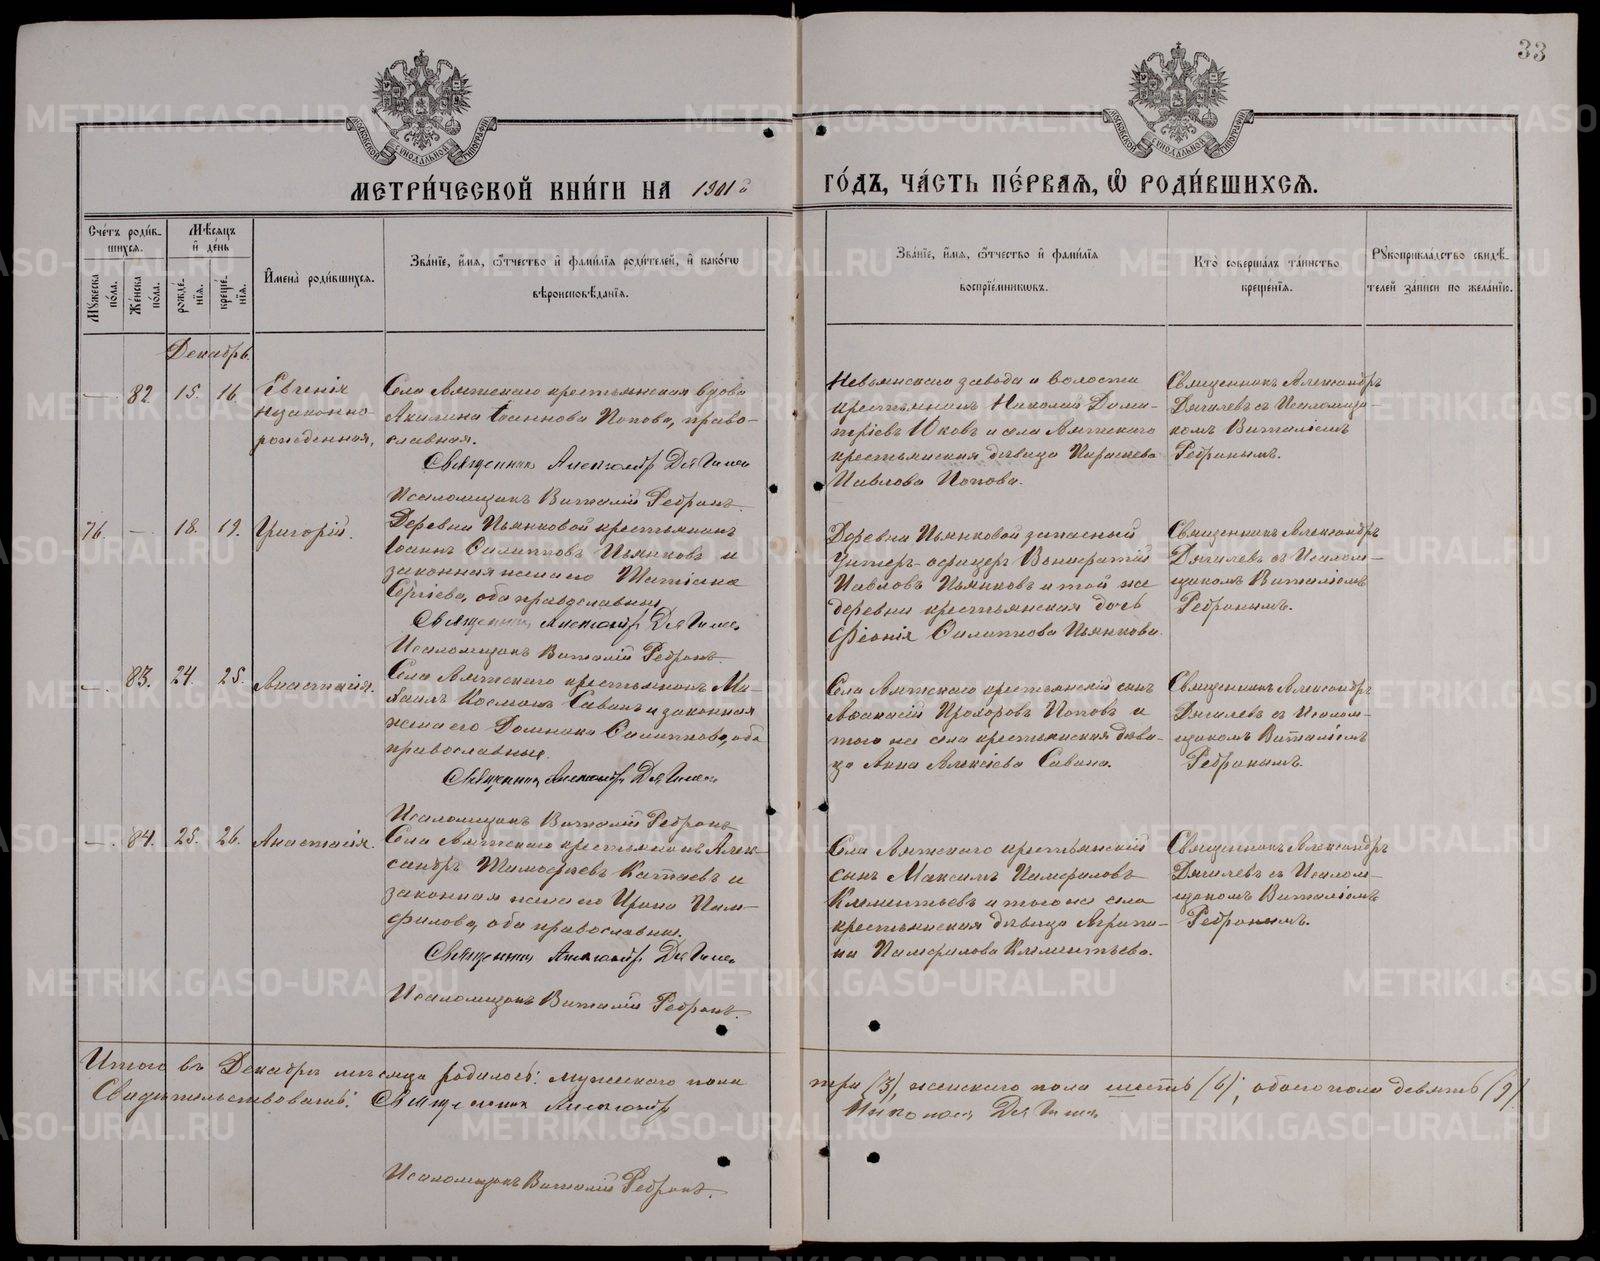 33
МОСКОВСКОЙ СѴНОДАЛЬНОЙ ТИПОГРАФІИ
МОСКОВСКОЙ СѴНОДАЛЬНОЙ ТИПОГРАФІИ
МЕТРИ́ЧЕСКОЙ КНИ́ГИ НА 1901й ГО́ДЪ, ЧА́СТЬ ПЕ́РВАѦ, Ѽ РОДИ́ВШИХСѦ.
Сче́тъ роди́в-
шихсѧ.
Мꙋжеска по́ла.
Же́нска по́ла.
Мѣсѧцъ
и҆ де́нь
рожде́-
нїѧ.
креще́-
нїѧ.
И҆мена̀ роди́вшихсѧ.
Зва́нїе, и҆́мѧ, ѻ҆́тчество и҆ фами́лїѧ роди́телей, и҆ како́гѡ
вѣроисповѣ́данїѧ.
Зва́нїе, и҆́мѧ, ѻ҆́тчество и҆ фами́лїѧ
воспрїе́мникѡвъ.
Кто̀ соверша́лъ та́инство
креще́нїѧ.
Рꙋкоприкла́дство свидѣ́-
телей за́писи по жела́нїю.
Декабрь.
— 82 15. 16. Евгенія
незаконно-
рожденная,
Села Аятскаго крестьянская вдова
Акилина Іоаннова Попова, право-
славная.
Священникъ Александръ Дягилевъ
Псаломщикъ Виталій Ребринъ.
Невьянскаго завода и волости
крестьянинъ Николай Дими-
тріевъ Юковъ и села Аятскаго
крестьянская дѣвица Параскева
Павлова Попова.
Священникъ Александръ
Дягилевъ съ Псаломщи-
комъ Виталіемъ
Ребринымъ.
76. — 18. 19. Григорій.
Деревни Пьянковой крестьянинъ
Іоаннъ Филипповъ Пьянковъ и
законная жена его Татіана
Сергіева, оба православные.
Священникъ Александръ Дягилевъ
Псаломщикъ Виталій Ребринъ.
Деревни Пьянковой запасный
унтеръ-офицеръ Вонифатій
Павловъ Пьянковъ и той же
деревни крестьянская дочь
Фіонія Филиппова Пьянкова.
Священникъ Александръ
Дягилевъ съ Псалом-
щикомъ Виталіемъ
Ребринымъ.
— 83. 24. 25. Анастасія.
Села Аятскаго крестьянинъ Ми-
хаилъ Косминъ Савинъ и законная
жена его Домника Филиппова, оба
православные.
Священникъ Александръ Дягилевъ
Псаломщикъ Виталій Ребринъ
Села Аятскаго крестьянскій сынъ
Аѳанасій Прохоровъ Поповъ и
того же села крестьянская дѣви-
ца Анна Алексіева Савина.
Священникъ Александръ
Дягилевъ съ Псалом-
щикомъ Виталіемъ
Ребринымъ.
— 84. 25. 26. Анастасія.
Села Аятскаго крестьянинъ Алек-
сандръ Тимофѣевъ Катаевъ и
законная жена его Ирина Пам-
филова, оба православные.
Священникъ Александръ Дягилевъ
Псаломщикъ Виталій Ребринъ.
Села Аятскаго крестьянскій
сынъ Максимъ Памфиловъ
Клементьевъ и того же села
крестьянская дѣвица Агрипи-
на Памфилова Клементьева.
Священникъ Александръ
Дягилевъ съ Псалом-
щикомъ Виталіемъ
Ребринымъ.
Итого въ Декабрѣ мѣсяцѣ родилось: мужескаго пола три (3), женскаго пола шесть (6); обоего пола девять (9).
Свидѣтельствовали: Священникъ Александръ Николаевъ Дягилевъ
Псаломщикъ Виталій Ребринъ.
METRIKI.GASO-URAL.RU